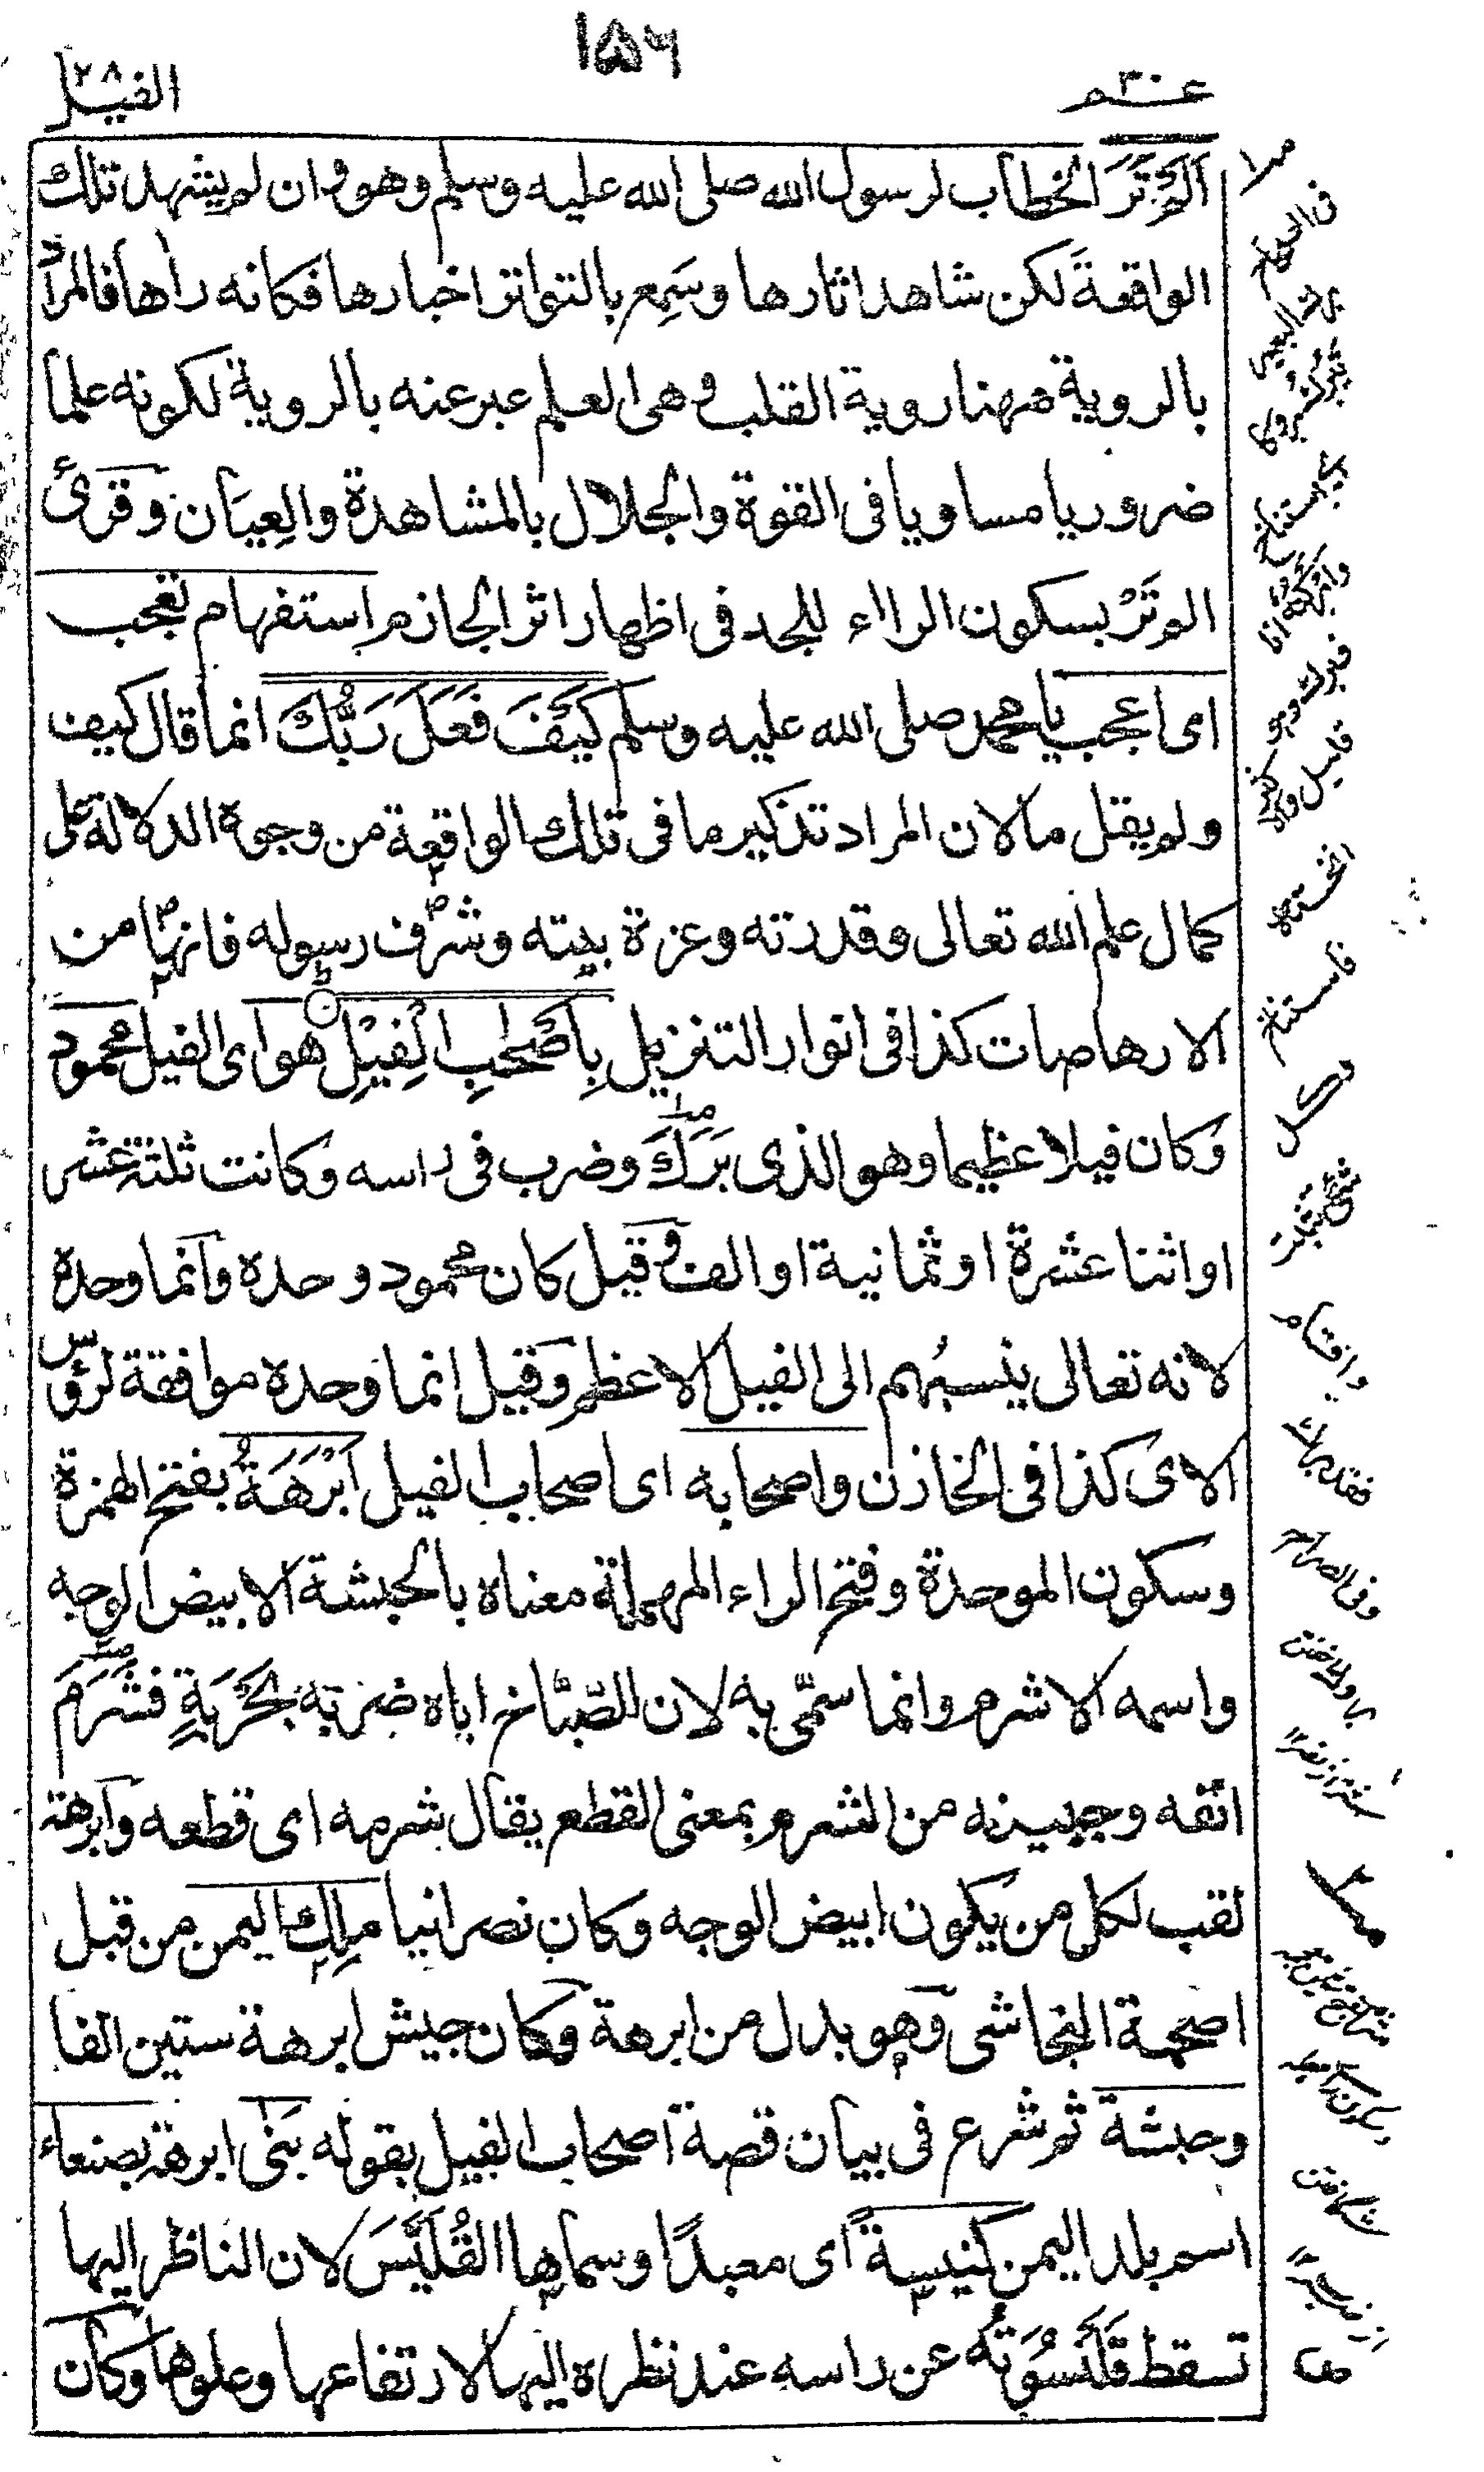 ١٥٦
عـ٣٠ـم
الفيل٢٨
اَلَمْ تَرَ الخطاب لرسول الله صلى الله عليه وسلم وهو وان لم يشهد تلك
الواقعةَ لكن شاهد اثارها وسَمِع بالتواتر اخبارها فكانه راٰها فالمراد
بالروية ههنا روية القلب وهى العلم عبر عنه بالروية لكونه علما
ضروريا مساويا فى القوة والجلال بالمشاهدة والعِيَان وقرئ
الم تَرْ بسكون الراء للجد فى اظهار اثر الجازم استفهام تعجب
اى اعجب يا محمد صلى الله عليه وسلم كَيْفَ فَعَلَ رَبُّكَ انما قال كيف
ولم يقل ما لان المراد تذكير ما فى تلك الواقعة من وجوه الدلالة على
كمال علم الله تعالى وقدرته وعزة بيته وشرف رسوله فانها من
الارهاصات كذا فى انوار التنزيل بِاَصْحٰبِ الْفِيْلِ هو اى الفيل محمود
وكان فيلا عظيما وهو الذى بَرَكَ وضرب فى راسه وكانت ثلثة عشر
او اثنا عشرة او ثمانية او الف وقيل كان محمود وحده وانما وحده
لانه تعالى ينسبُهم الى الفيل الاعظم وقيل انما وحده موافقة لرؤس
الاى كذا فى الخازن واصحابه اى اصحاب الفيل اَبْرَهَةُ بفتح الهمزة
وسكون الموحدة وفتح الراء المهملة معناه بالحبشة الابيض الوجه
واسمه الاشرم وانما سمّى به لان الصّبّاخ اباه ضربه بحَرْبَةٍ فشَرَمَ
انفه وجبينه من الشرم بمعنى القطع يقال شرمه اى قطعه وابرهة
لقب لكل من يكون ابيض الوجه وكان نصرانيا ملِك اليمن من قبل
اصحمة النجاشى وهو بدل من ابرهة وكان جيش ابرهة ستين الفا
وحبشة ثم شرع فى بيان قصة اصحاب الفيل بقوله بَنٰى ابرهة بصنعاء
اسم بلد اليمن كنيسةً اى معبدًا وسماها القُلَيْسَ لان الناظر اليها
تسقط قَلَنْسُوَتُه عن راسه عند نظره اليها لارتفاعها وعلوها وكان